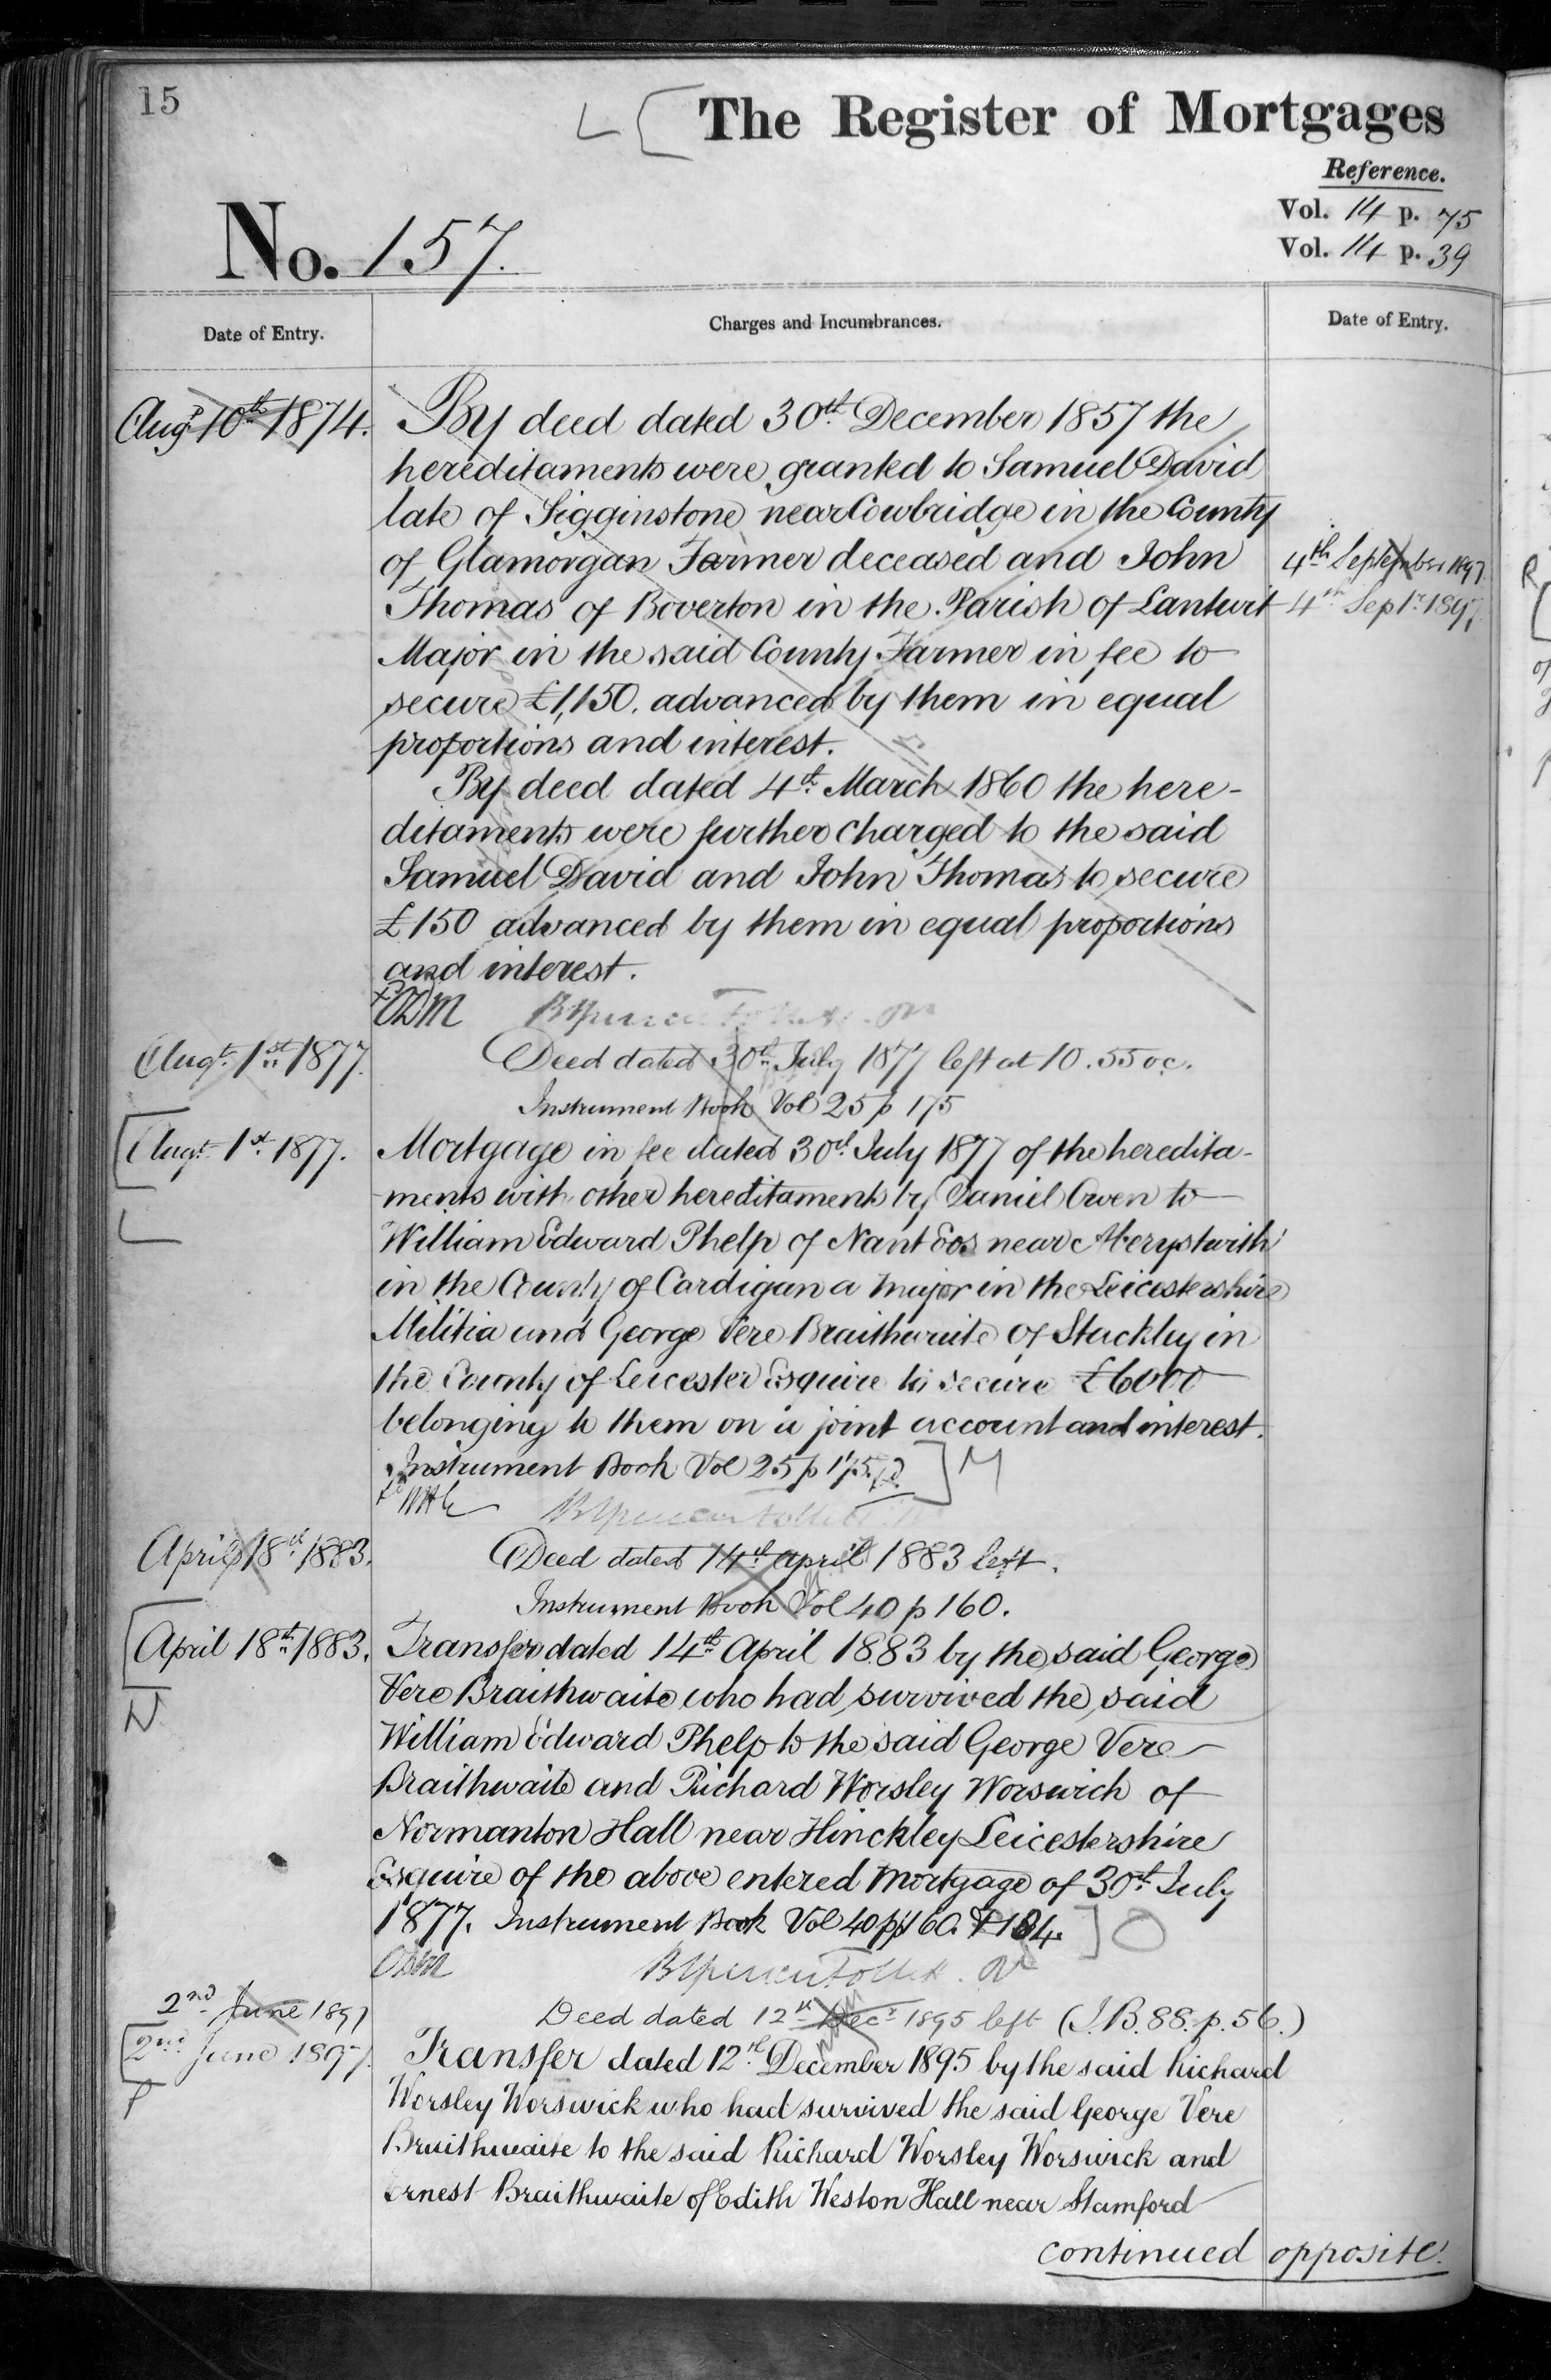 15
The Register of Mortgages
Reference.
Vol. 14 p. 75
No. 157.
Vol. 14 p. 39
Date of Entry.
Charges and Incumbrances.
Date of Entry.
Augt 10th 1874.
By deed dated 30th December 1857 the
hereditaments were granted to Samuel David
late of Sigginstone near Cowbridge in the County
of Glamorgan Farmer deceased and John
4th September 1897
Thomas of Boverton in the Parish of Lantwit
4th Septr 1897
Major in the said County Farmer in fee to
secure £1,150. advanced by them in equal
proportions and interest.
By deed dated 4th March 1860 the here-
ditaments were further charged to the said
Samuel David and John Thomas to secure
£150 advanced by them in equal proportions
and interest.
Augt 1st 1877.
Deed dated 30th July 1877 left at 10.55 oc.
Instrument Book Vol 25 p 175
Augt 1st 1877.
Mortgage in fee dated 30th July 1877 of the heredita-
ments with other hereditaments by Daniel Owen to
William Edward Phelp of Nant Eos near Aberystwith
L
in the County of Cardigan a Major in the Leicestershire
Militia and George Vere Braithwaite of Stackley in
the County of Leicester Esquire to secure £6000
belonging to them on a joint account and interest.
Instrument Book Vol 25 p 175. ] M
April 18th 1883.
Deed dated 14th April 1883 left.
Instrument Book Vol 40 p 160.
April 18th 1883.
Transfer dated 14th April 1883 by the said George
N
Vere Braithwaite who had survived the said
William Edward Phelp to the said George Vere
Braithwaite and Richard Worsley Worswich of
Normanton Hall near Hinckley Leicestershire
Esquire of the above entered Mortgage of 30th July
1877. Instrument Book Vol 40 pp 160. & 184. ] O
2nd June 1897
Deed dated 12th Decr 1895 left (I.B. 88. p. 56.)
2nd June 1897.
Transfer dated 12th December 1895 by the said Richard
P
Worsley Worswick who had survived the said George Vere
Braithwaite to the said Richard Worsley Worswick and
Ernest Braithwaite of Edith Weston Hall near Stamford
continued opposite.